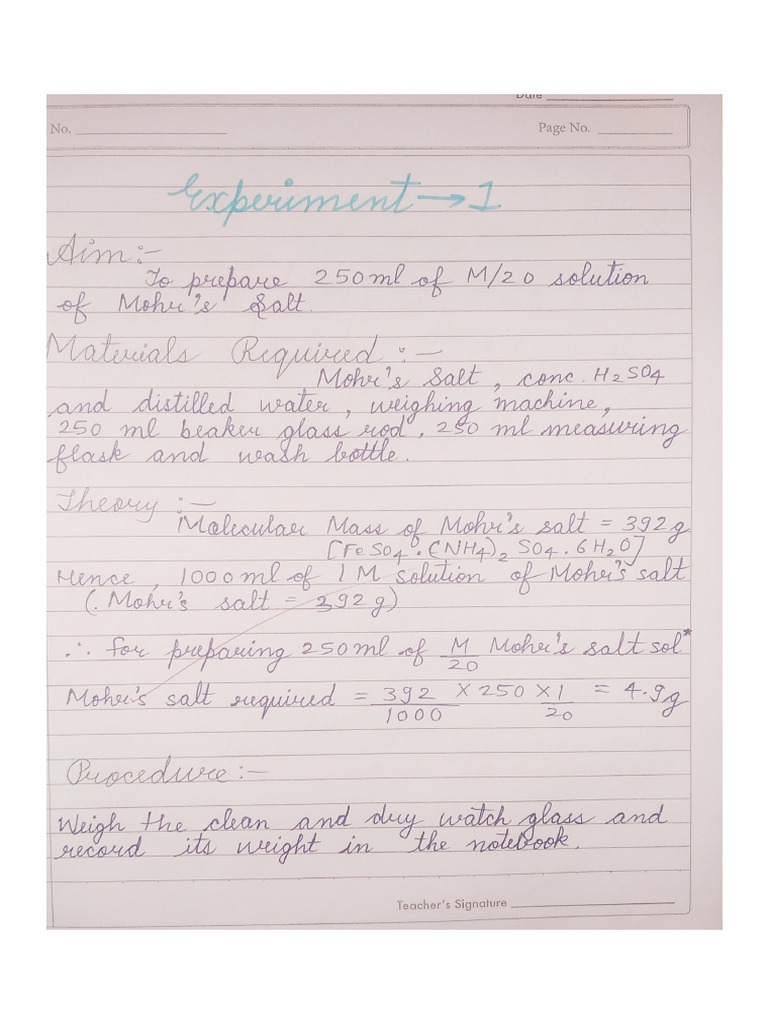 Date
No. Page No.
Experiment → 1
Aim:-
To prepare 250ml of M/20 solution
of Mohr's Salt.
Materials Required :-
Mohr's Salt, conc. H2SO4
and distilled water, weighing machine,
250 ml beaker glass rod, 250 ml measuring
flask and wash bottle.
Theory :-
Molecular Mass of Mohr's salt = 392g
[FeSO4.(NH4)2 SO4.6H2O]
Hence, 1000ml of 1M solution of Mohr's salt
(. Mohr's salt = 392g)
∴ for preparing 250ml of M/20 Mohr's salt sol*
Mohr's salt required = 392/1000 × 250 × 1/20 = 4.9g
Procedure:-
Weigh the clean and dry watch glass and
record its weight in the notebook.
Teacher's Signature